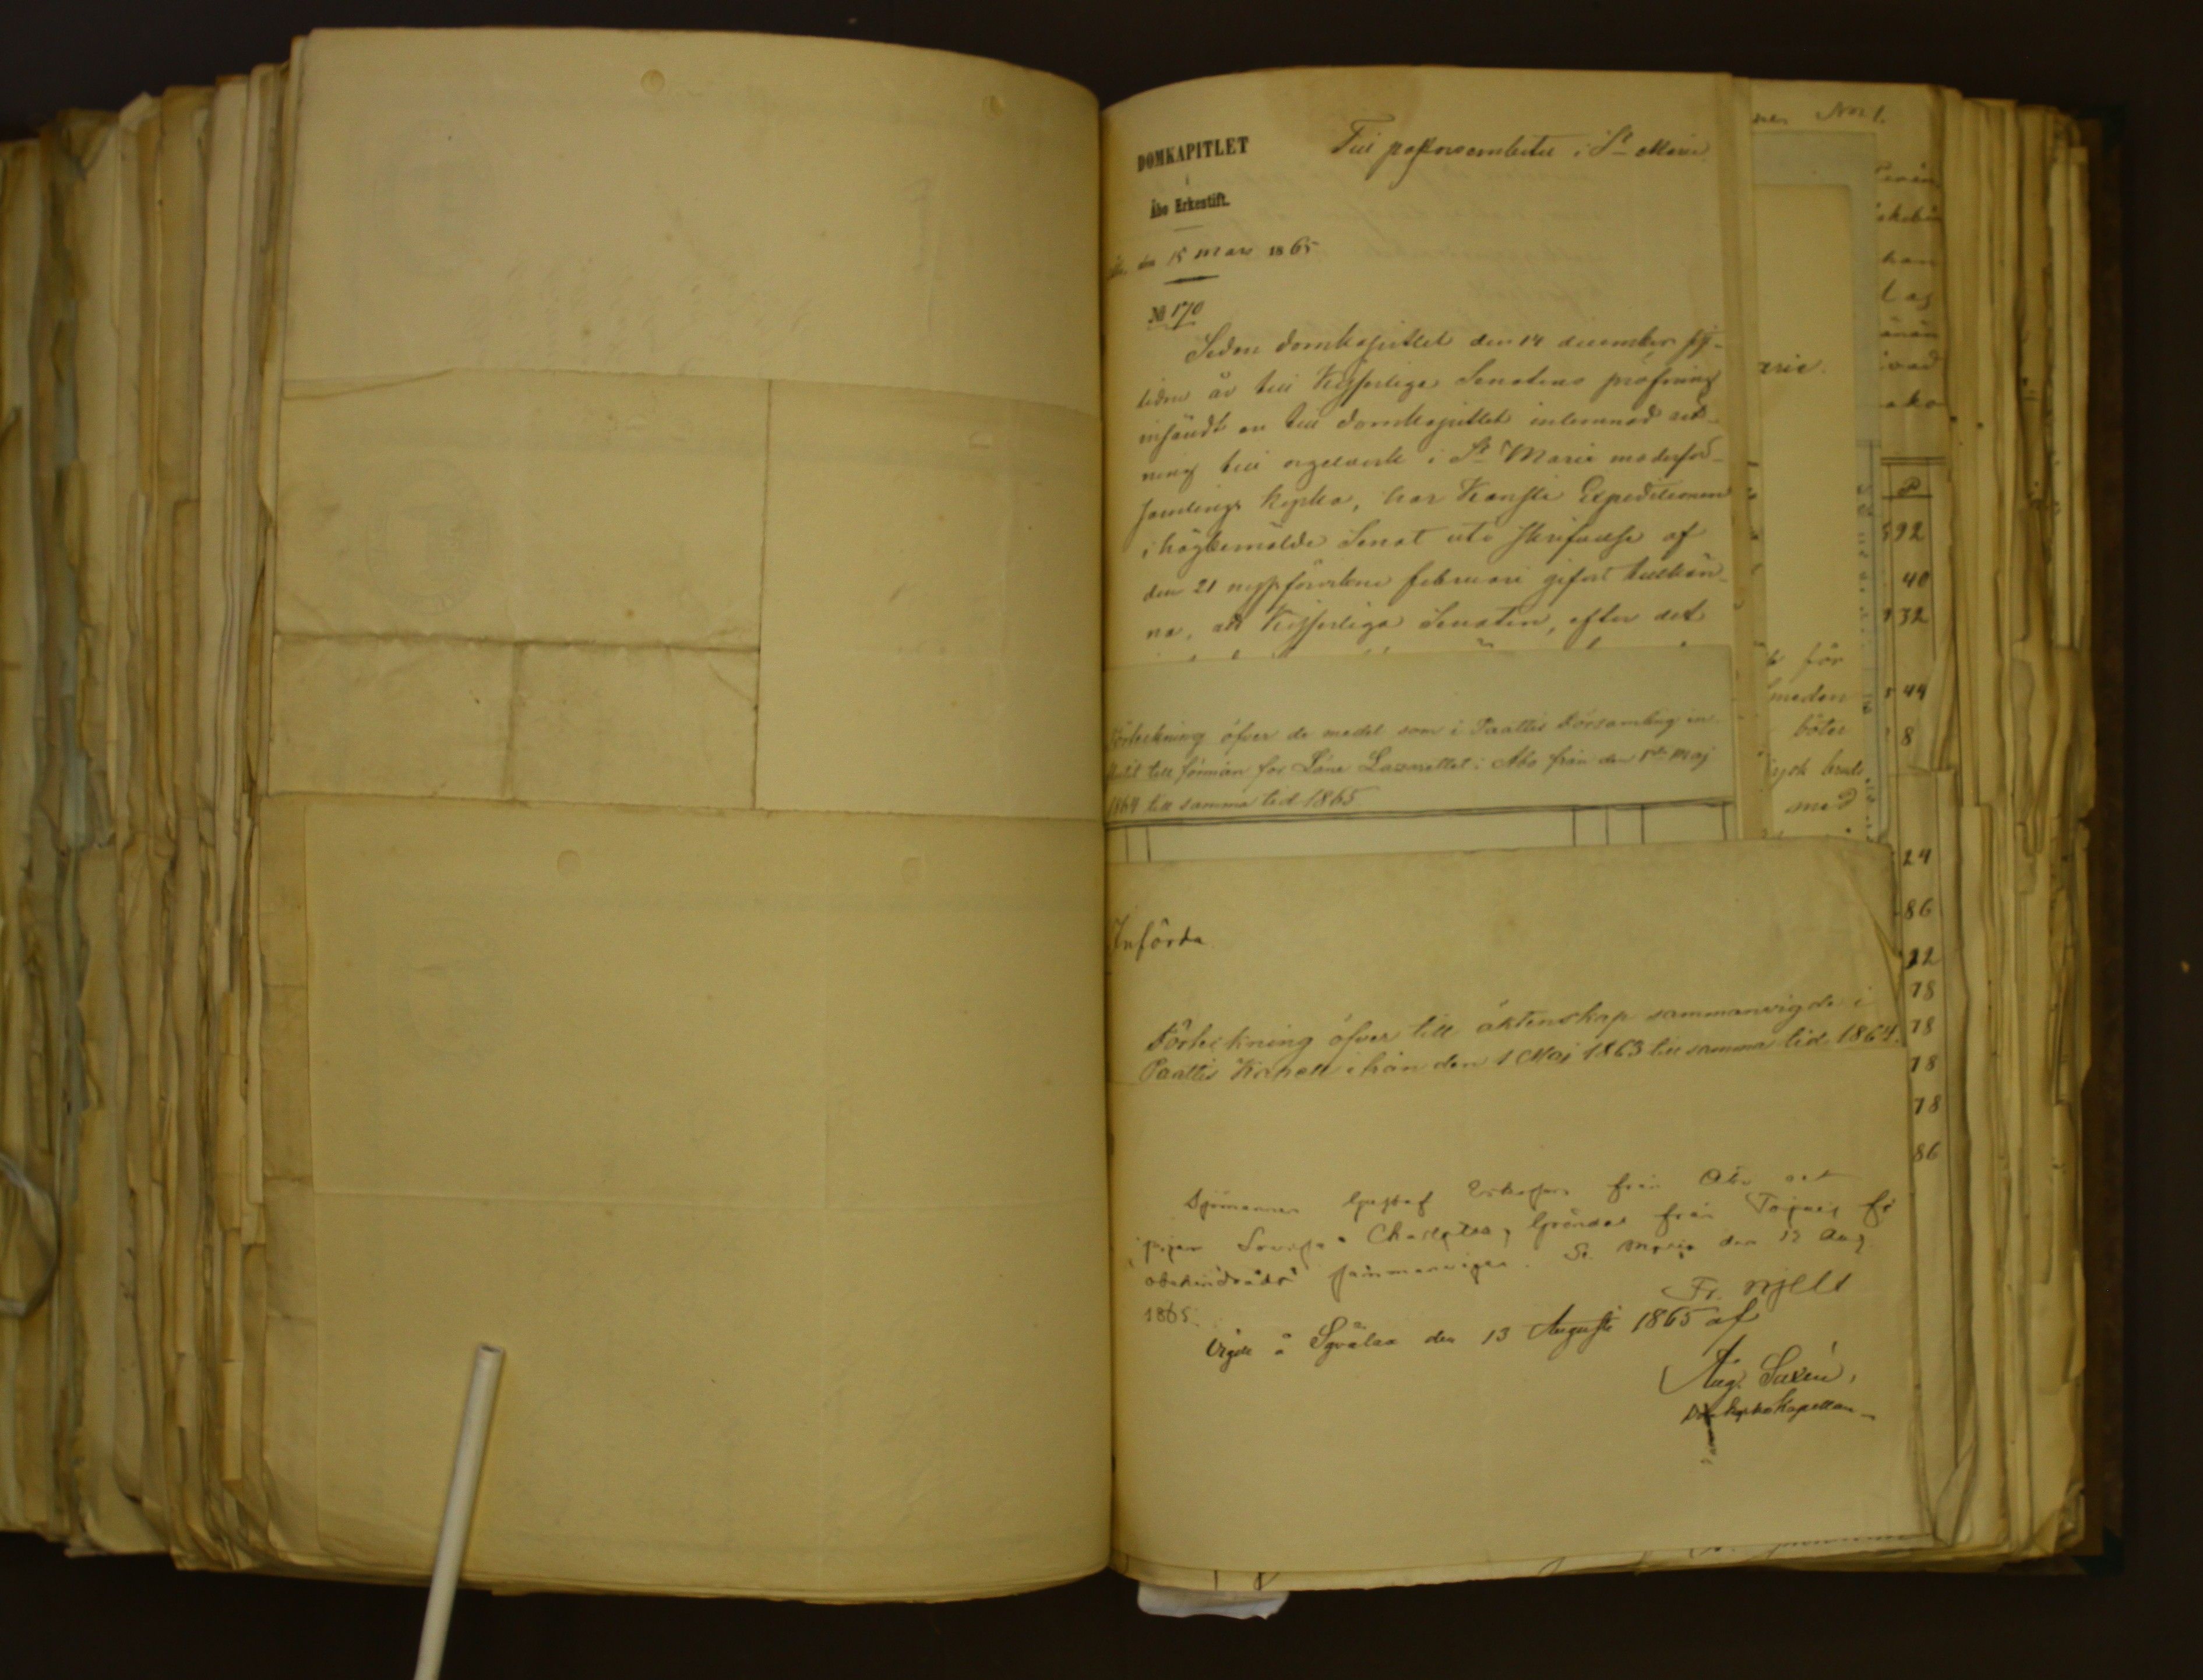 DOMKAPITLET
i
Åbo Erkestift.
Till pastorsembetet i St Marie
Åbo, den 15 Mars 1865
№ 170
Sedan domkapitlet den 14 december sist-
lidne år till Kejserliga Senatens pröfning
insändt en till domkapitlet inlemnad rit-
ning till orgelverk i St Marie moderför-
samlings kyrka, har Kansli Expeditionen
i högbemälde Senat uti skrifvelse af
den 21 nyssförvikne februari gifvit tillkän-
na, att Kejserliga Senaten, efter det
Förteckning öfver de medel som i Paattis Församling in
flutit till förmån för Läne Lazarettet i Åbo från den 1sta Maj
1864 till samma tid 1865
Införda
Förteckning öfver till äktenskap sammanvigde i
Paattis Kapell ifrån den 1 Maj 1863 till samma tid 1864.
Sjömannen Gustaf från Åbo och
pigan Lovisa Charlotta från få
obehindradt sammanvigas. St. Marie den 12 Aug.
1865.
Fr. Hjelt
Vigde å den 13 Augusti 1865 af
Aug. Saxén,
Domkyrko Kapellan
No 1.
arie.
för
meden
böter
med
P
92
40
32
44
8
24
86
22
78
78
78
78
86